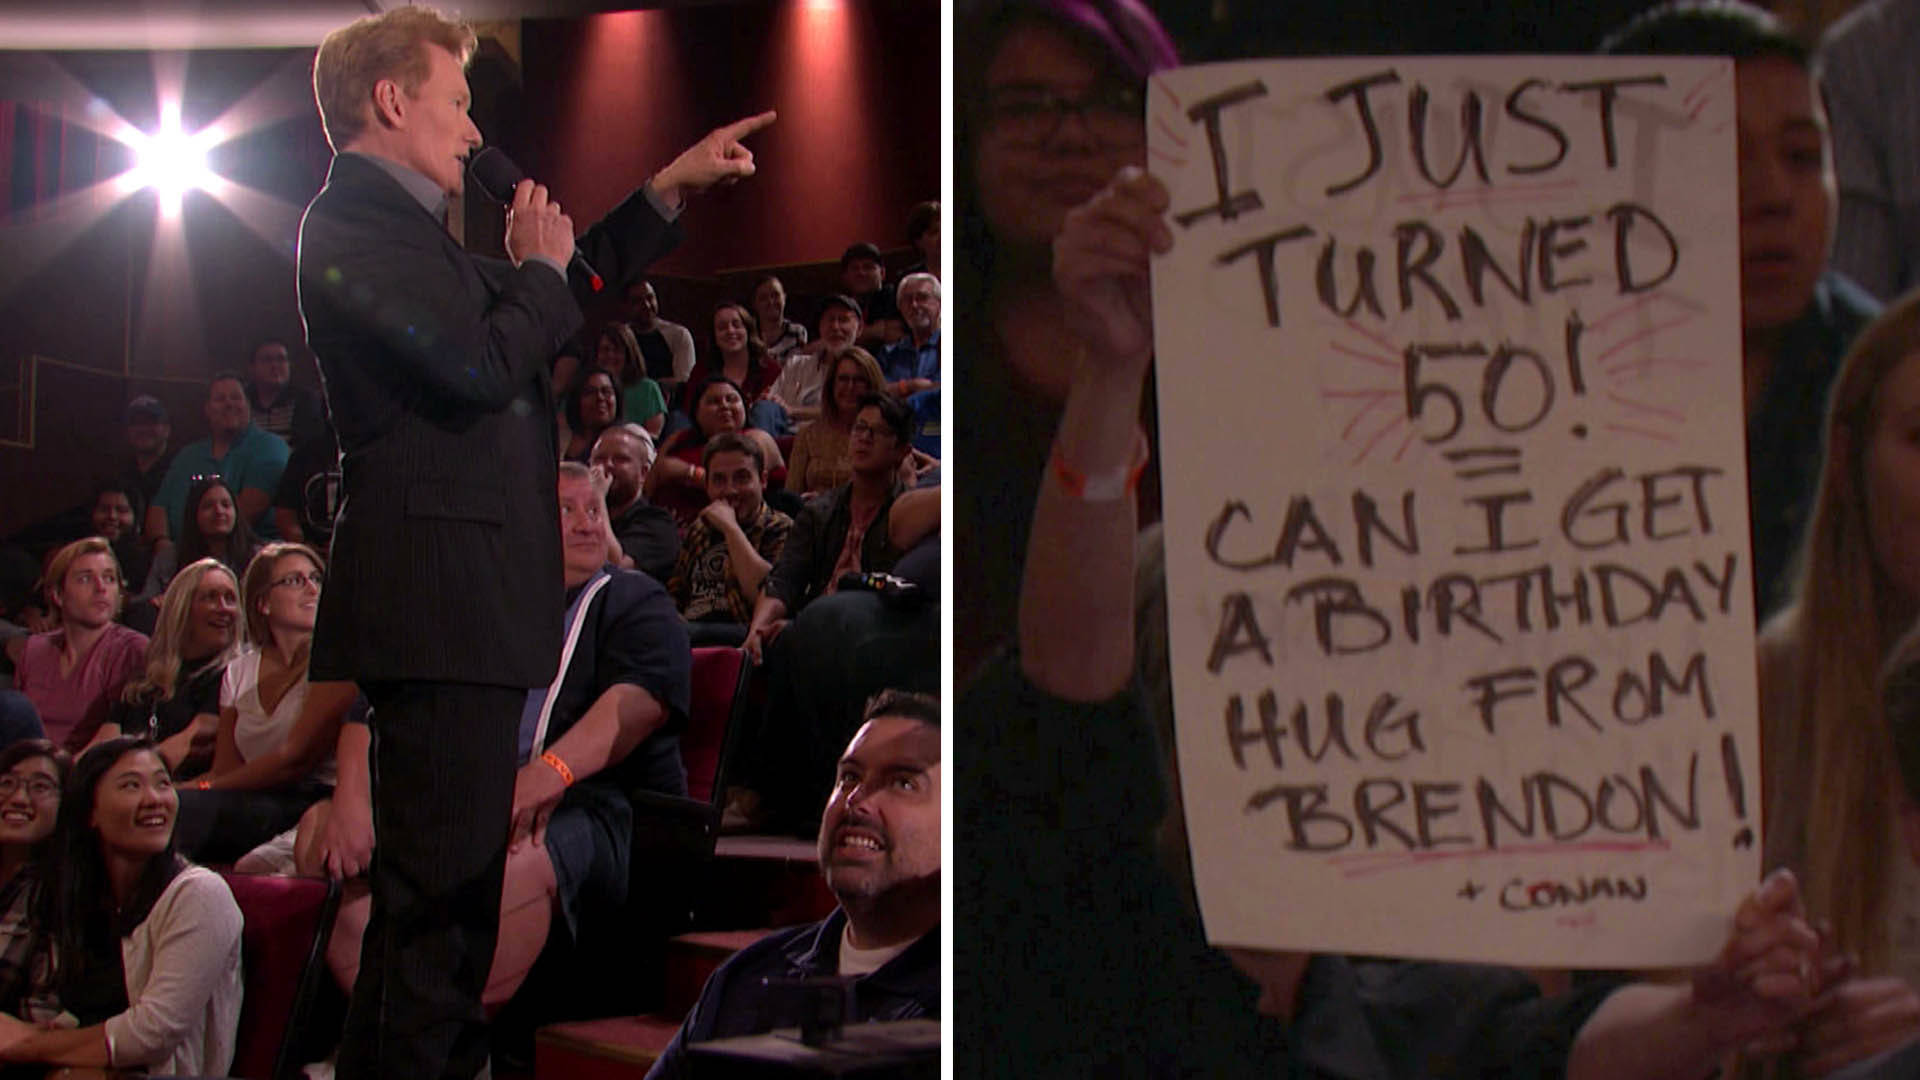 I JUST
TURNED
50!
CAN I GET
A BIRTHDAY
HUG FROM
BRENDON!
+ CONAN